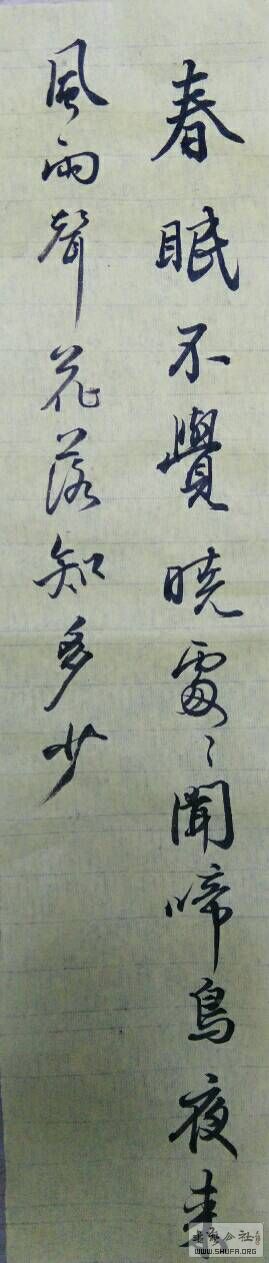 春眠不覺曉處〻聞啼鳥夜來
風雨聲花落知多少
書法公社
WWW.SHUFA.ORG